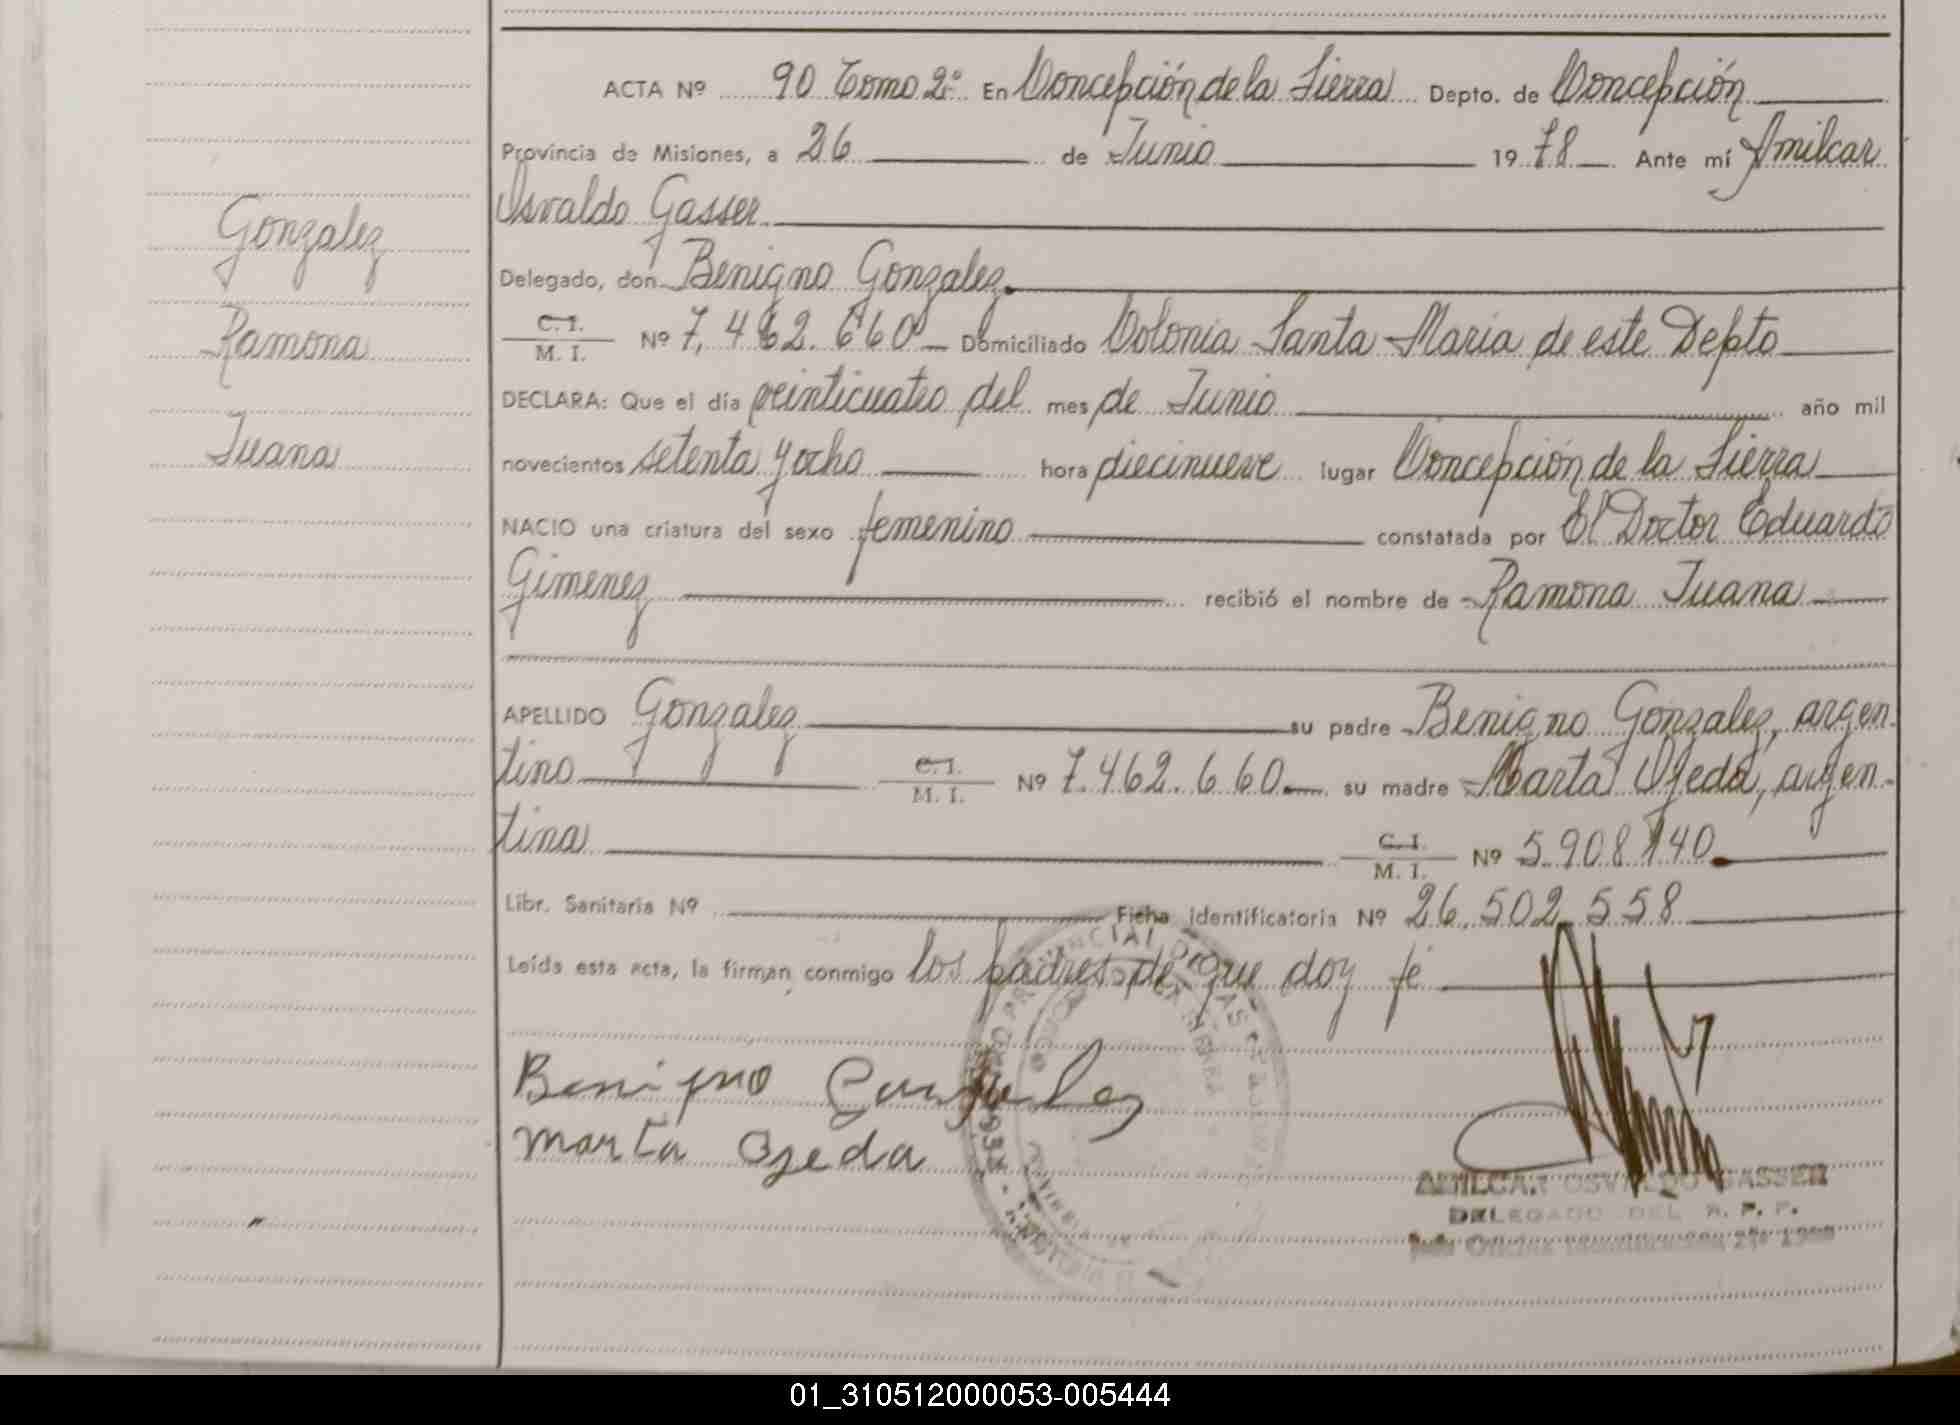 ACTA Nº 90 Tomo 2º En Concepción de la Sierra Depto. de Concepción
Provincia de Misiones, a 26 de Junio 1978 Ante mí Amilcar
Osvaldo Gasser
Delegado, don Benigno Gonzalez
C.I.
M. I. Nº 7.462.660 Domiciliado Colonia Santa Maria de este Depto
DECLARA: Que el día veinticuatro del mes de Junio año mil
novecientos setenta y ocho hora diecinueve lugar Concepción de la Sierra
NACIO una criatura del sexo femenino constatada por El Doctor Eduardo
Gimenez recibió el nombre de Ramona Juana
APELLIDO Gonzalez su padre Benigno Gonzalez, argen-
tino C.I.
M. I. Nº 7.462.660 su madre Marta Ojeda, argen-
tina C.I.
M. I. Nº 5.908.140
Libr. Sanitaria Nº Ficha identificatoria Nº 26.502.558
Leída esta acta, la firman conmigo los padres de que doy fé
Gonzalez
Ramona
Juana
Benigno Gonzalez
Marta Ojeda
AMILCAR OSVALDO GASSER
DELEGADO DEL R. P. P.
01_310512000053-005444